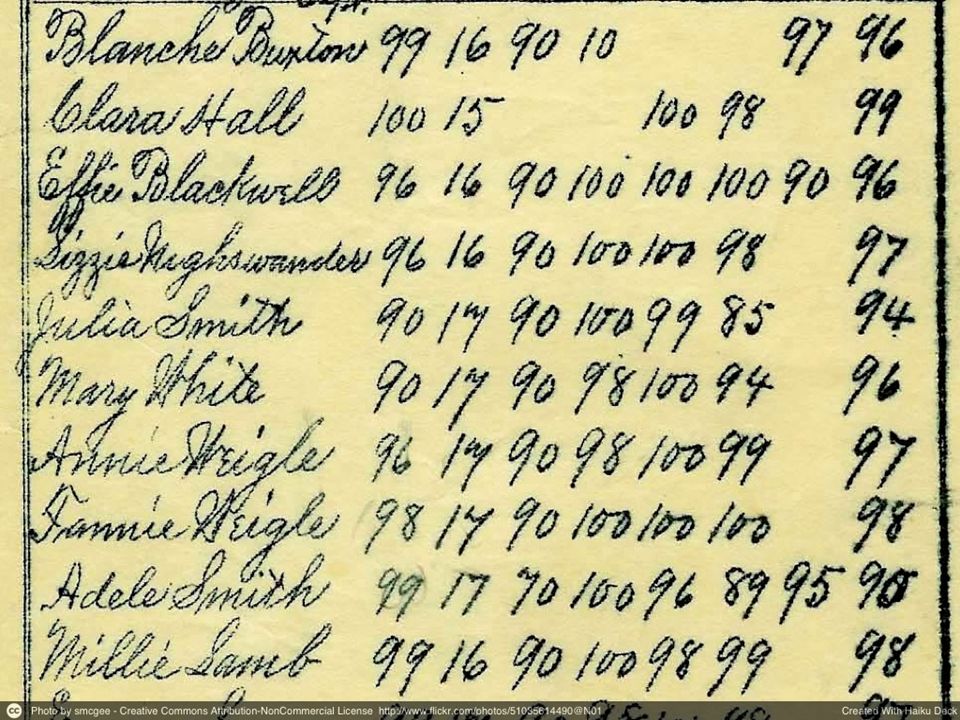 Blanche Buxton 99 16 90 10 97 96
Clara Hall 100 15 100 98 99
Effie Blackwell 96 16 90 100 100 100 90 96
Lizzie Nighswander 96 16 90 100 100 98 97
Julia Smith 90 17 90 100 99 85 94
Mary White 90 17 90 98 100 94 96
Annie Weigle 96 17 90 98 100 99 97
Fannie Weigle 98 17 90 100 100 100 98
Adele Smith 99 17 70 100 96 89 95 90
Millie Lamb 99 16 90 100 98 99 98
Photo by smcgee - Creative Commons Attribution-NonCommercial License http://www.flickr.com/photos/51035614490@N01 Created With Haiku Deck